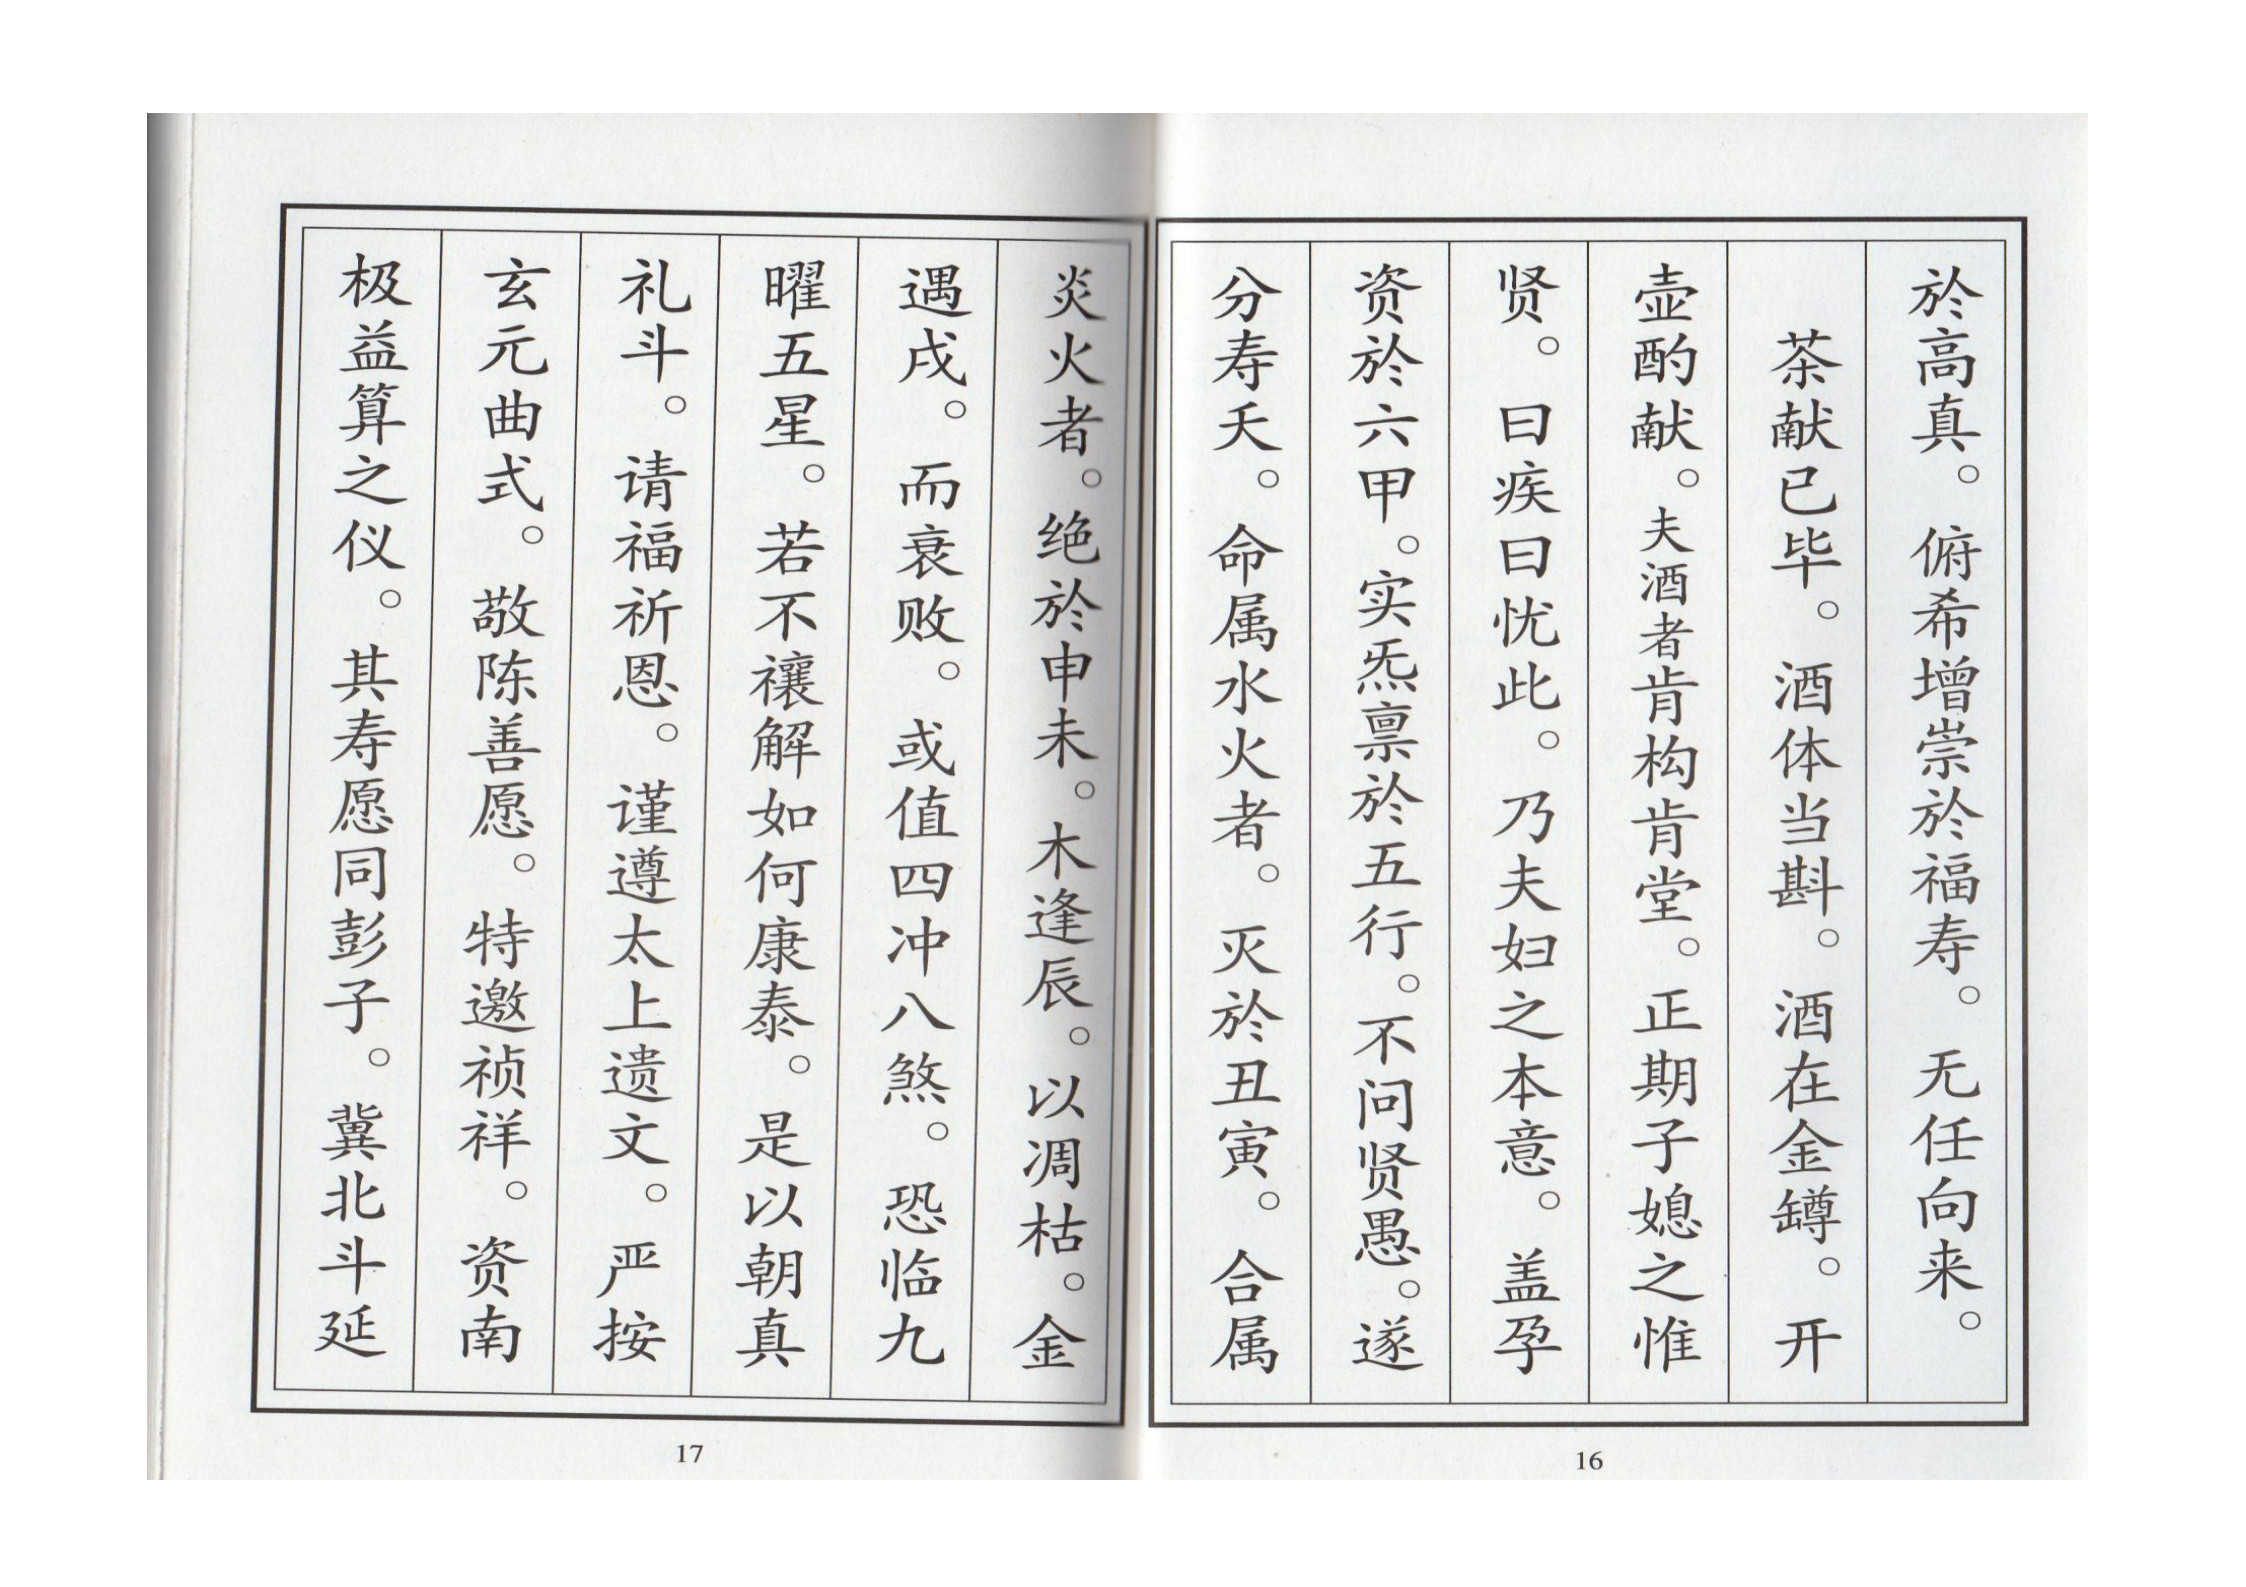 於高真。俯希增崇於福寿。无任向来。
茶献已毕。酒体当斟。酒在金罇。开
壶酌献。夫酒者肯构肯堂。正期子媳之惟
贤。曰疾曰忧此。乃夫妇之本意。盖孕
资於六甲。实炁禀於五行。不问贤愚。遂
分寿夭。命属水火者。灭於丑寅。合属
16
炎火者。绝於申未。木逢辰。以凋枯。金
遇戌。而衰败。或值四冲八煞。恐临九
曜五星。若不禳解如何康泰。是以朝真
礼斗。请福祈恩。谨遵太上遗文。严按
玄元曲式。敬陈善愿。特邀祯祥。资南
极益算之仪。其寿愿同彭子。冀北斗延
17